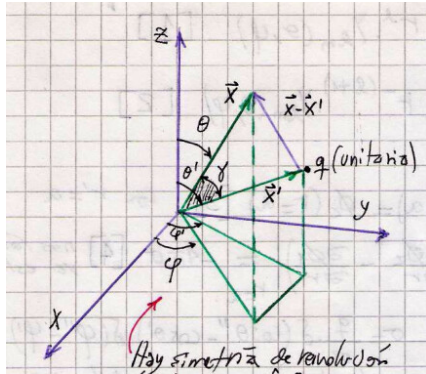 z
x⃗
x⃗-x⃗'
θ
θ'
γ
q (unitaria)
x⃗'
y
φ'
φ
X
Hay simetría de revolución